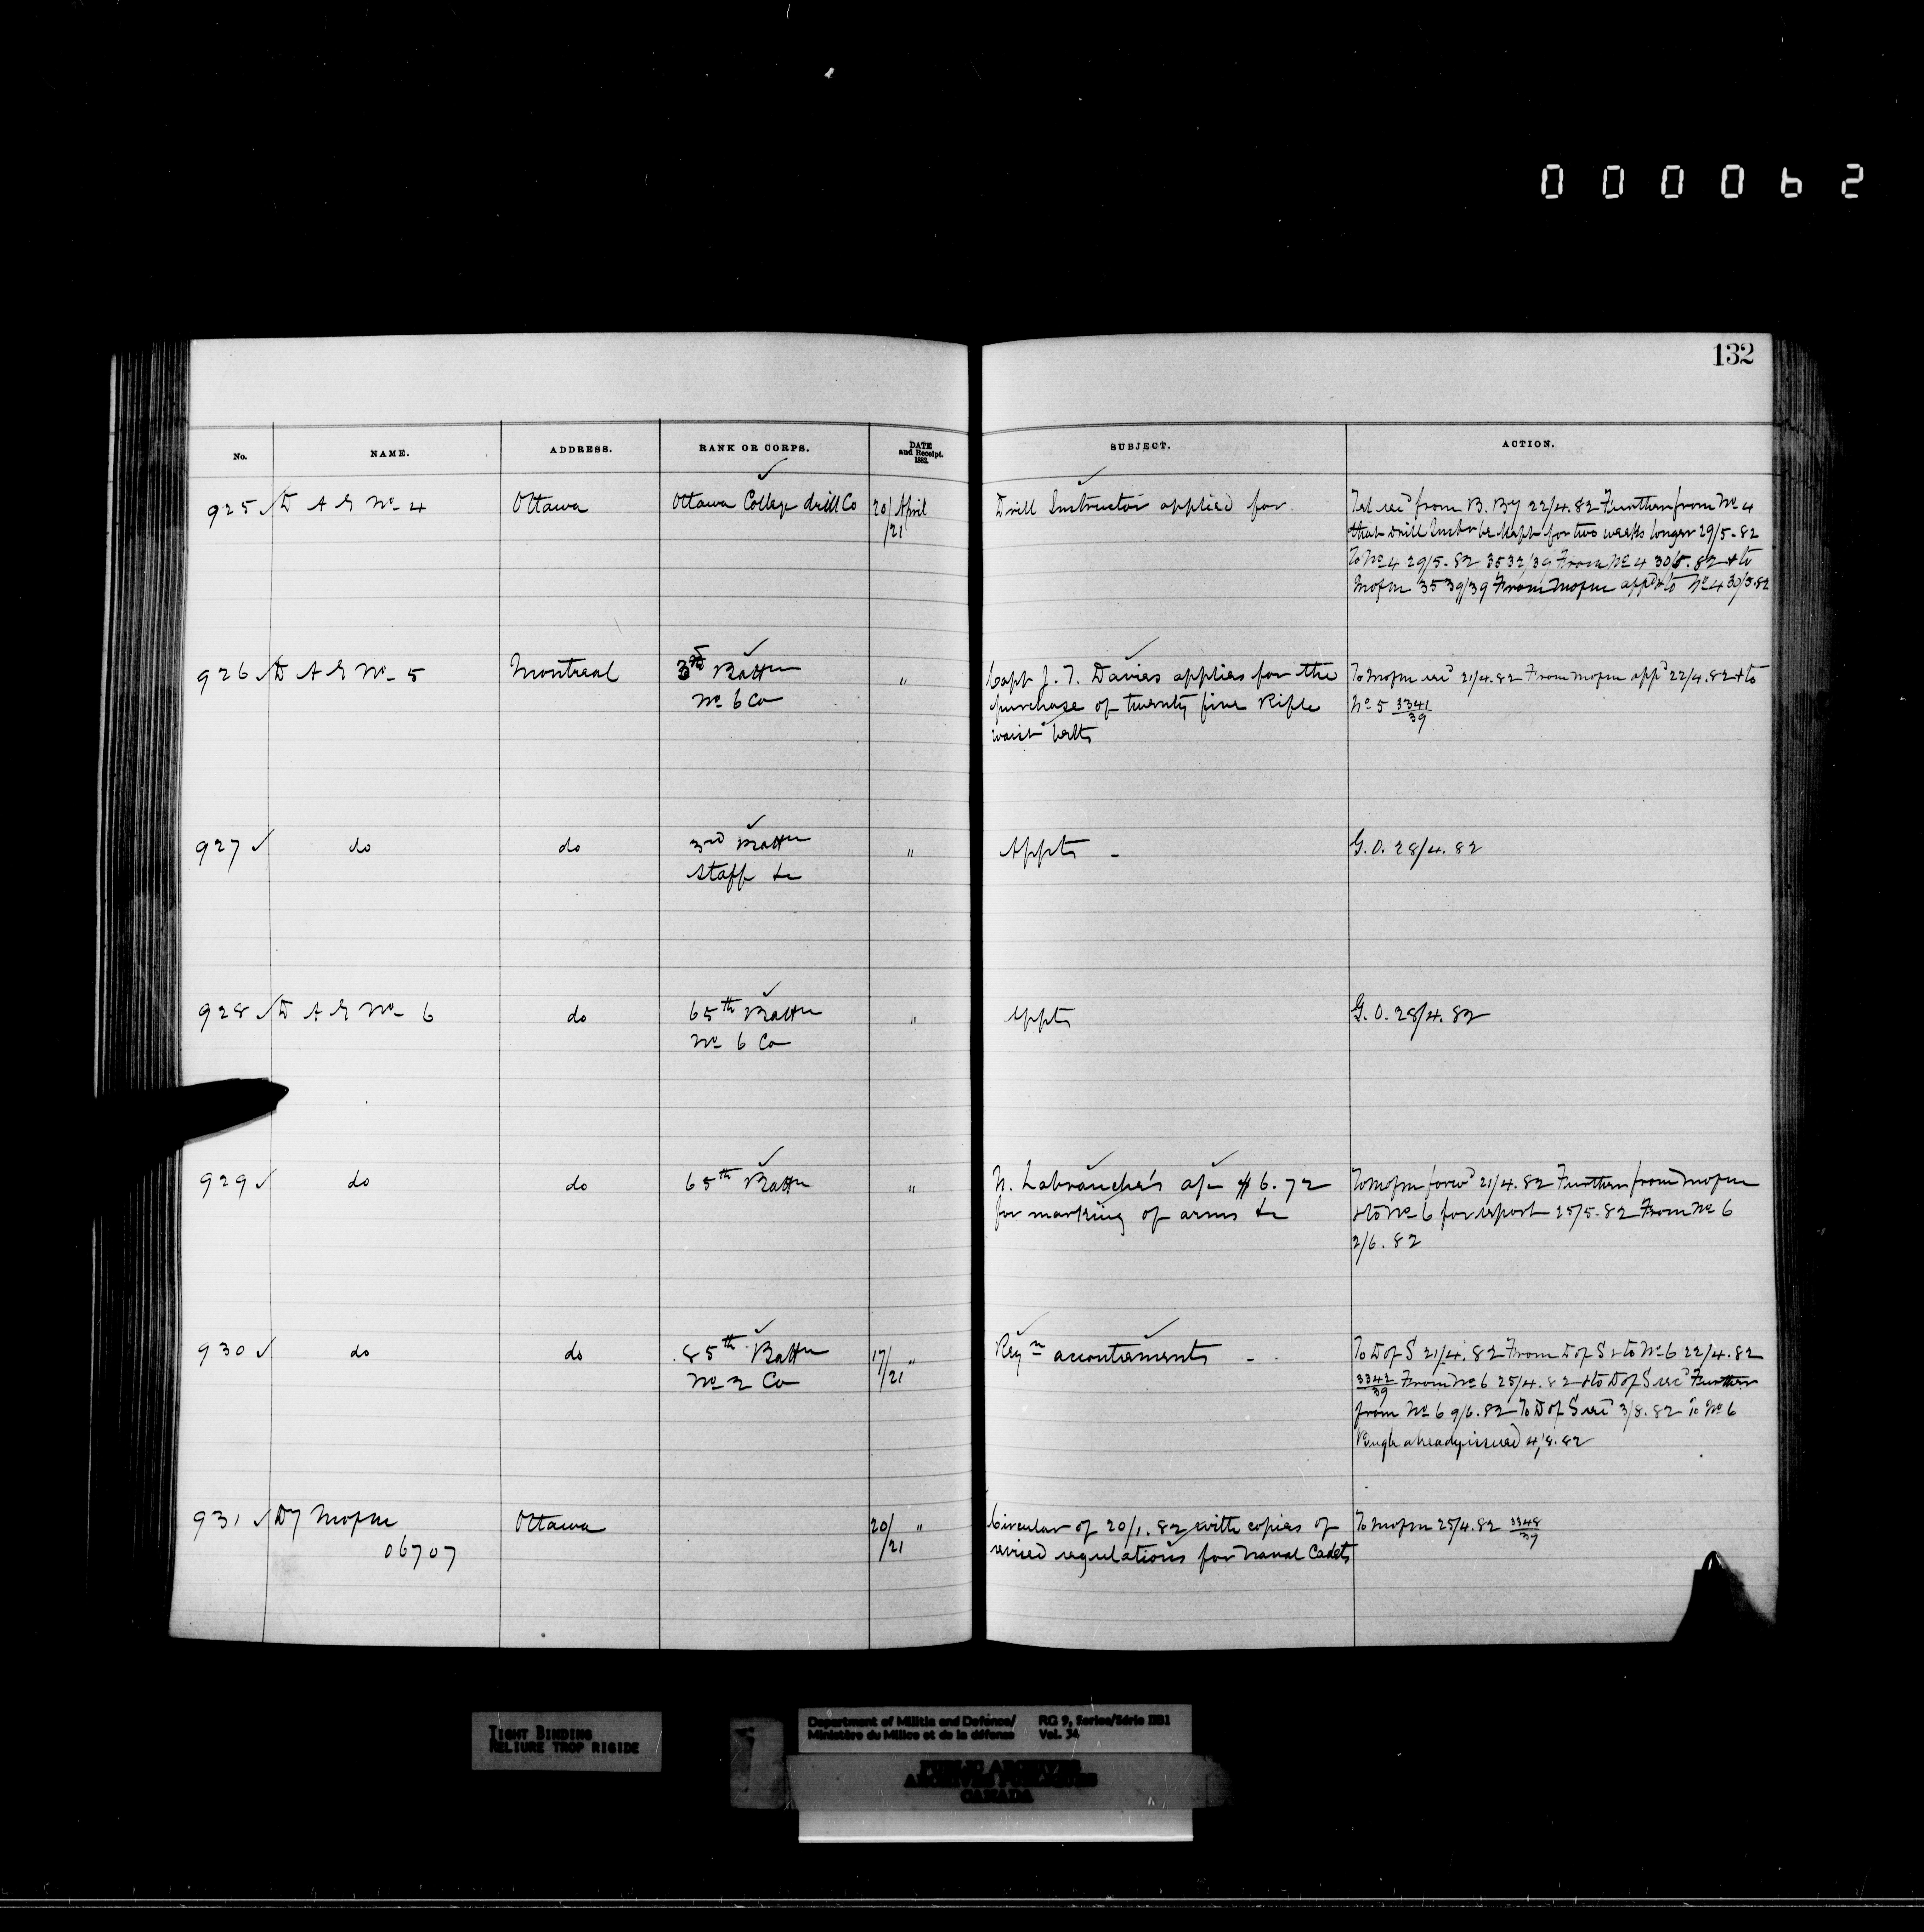 000062
132
No. NAME. ADDRESS. RANK OR CORPS. DATE and Receipt. 1882. SUBJECT. ACTION.
925 ✓ D A G No 4 Ottawa Ottawa College drill Co 20/21 April Drill Instructor applied for. Tel rec'd from B. By 22/4.82 Further from No 4
that Drill Instr be kept for two weeks longer 29/5.82
To No 4 29/5.82 3532/39 From No 4 30/5.82 & to
Mofm 3539/39 From Mofm app'd & to No 4 30/5.82
926 ✓ D A G No 5 Montreal 3rd Battn " Capt J. T. Davies applies for the To Mofm rec'd 21/4.82 From Mofm app'd 22/4.82 & to
No 6 Co purchase of twenty five Rifle No 5 3341/39
waist belts
927 ✓ do do 3rd Battn " Appts - G.O. 28/4.82
Staff &c
928 ✓ D A G No 6 do 65th Battn " Appts G.O. 28/4.82
No 6 Co
929 ✓ do do 65th Battn " N. Labranche's a/c $6.72 To Mofm forw'd 21/4.82 Further from Mofm
for marking of arms &c & to No 6 for report 25/5.82 From No 6
2/6.82
930 ✓ do do 85th Battn 17/21 " Reqn accoutrements - To D of S 21/4.82 From D of S & to No 6 22/4.82
No 2 Co 3342/39 From No 6 25/4.82 & to D of S rec'd Further
from No 6 9/6.82 To D of S rec'd 3/8.82 To No 6
already issued 4/8.82
931 ✓ Dy Mofm Ottawa 20/21 " Circular of 20/1.82 with copies of To Mofm 25/4.82 3348/39
06707 revised regulations for Naval Cadets
TIGHT BINDING
RELIURE TROP RIGIDE
Department of Militia and Defence/ RG 9, Series/Série IIB1
Ministère du Milice et de la défense Vol. 34
PUBLIC ARCHIVES
ARCHIVES PUBLIQUES
CANADA